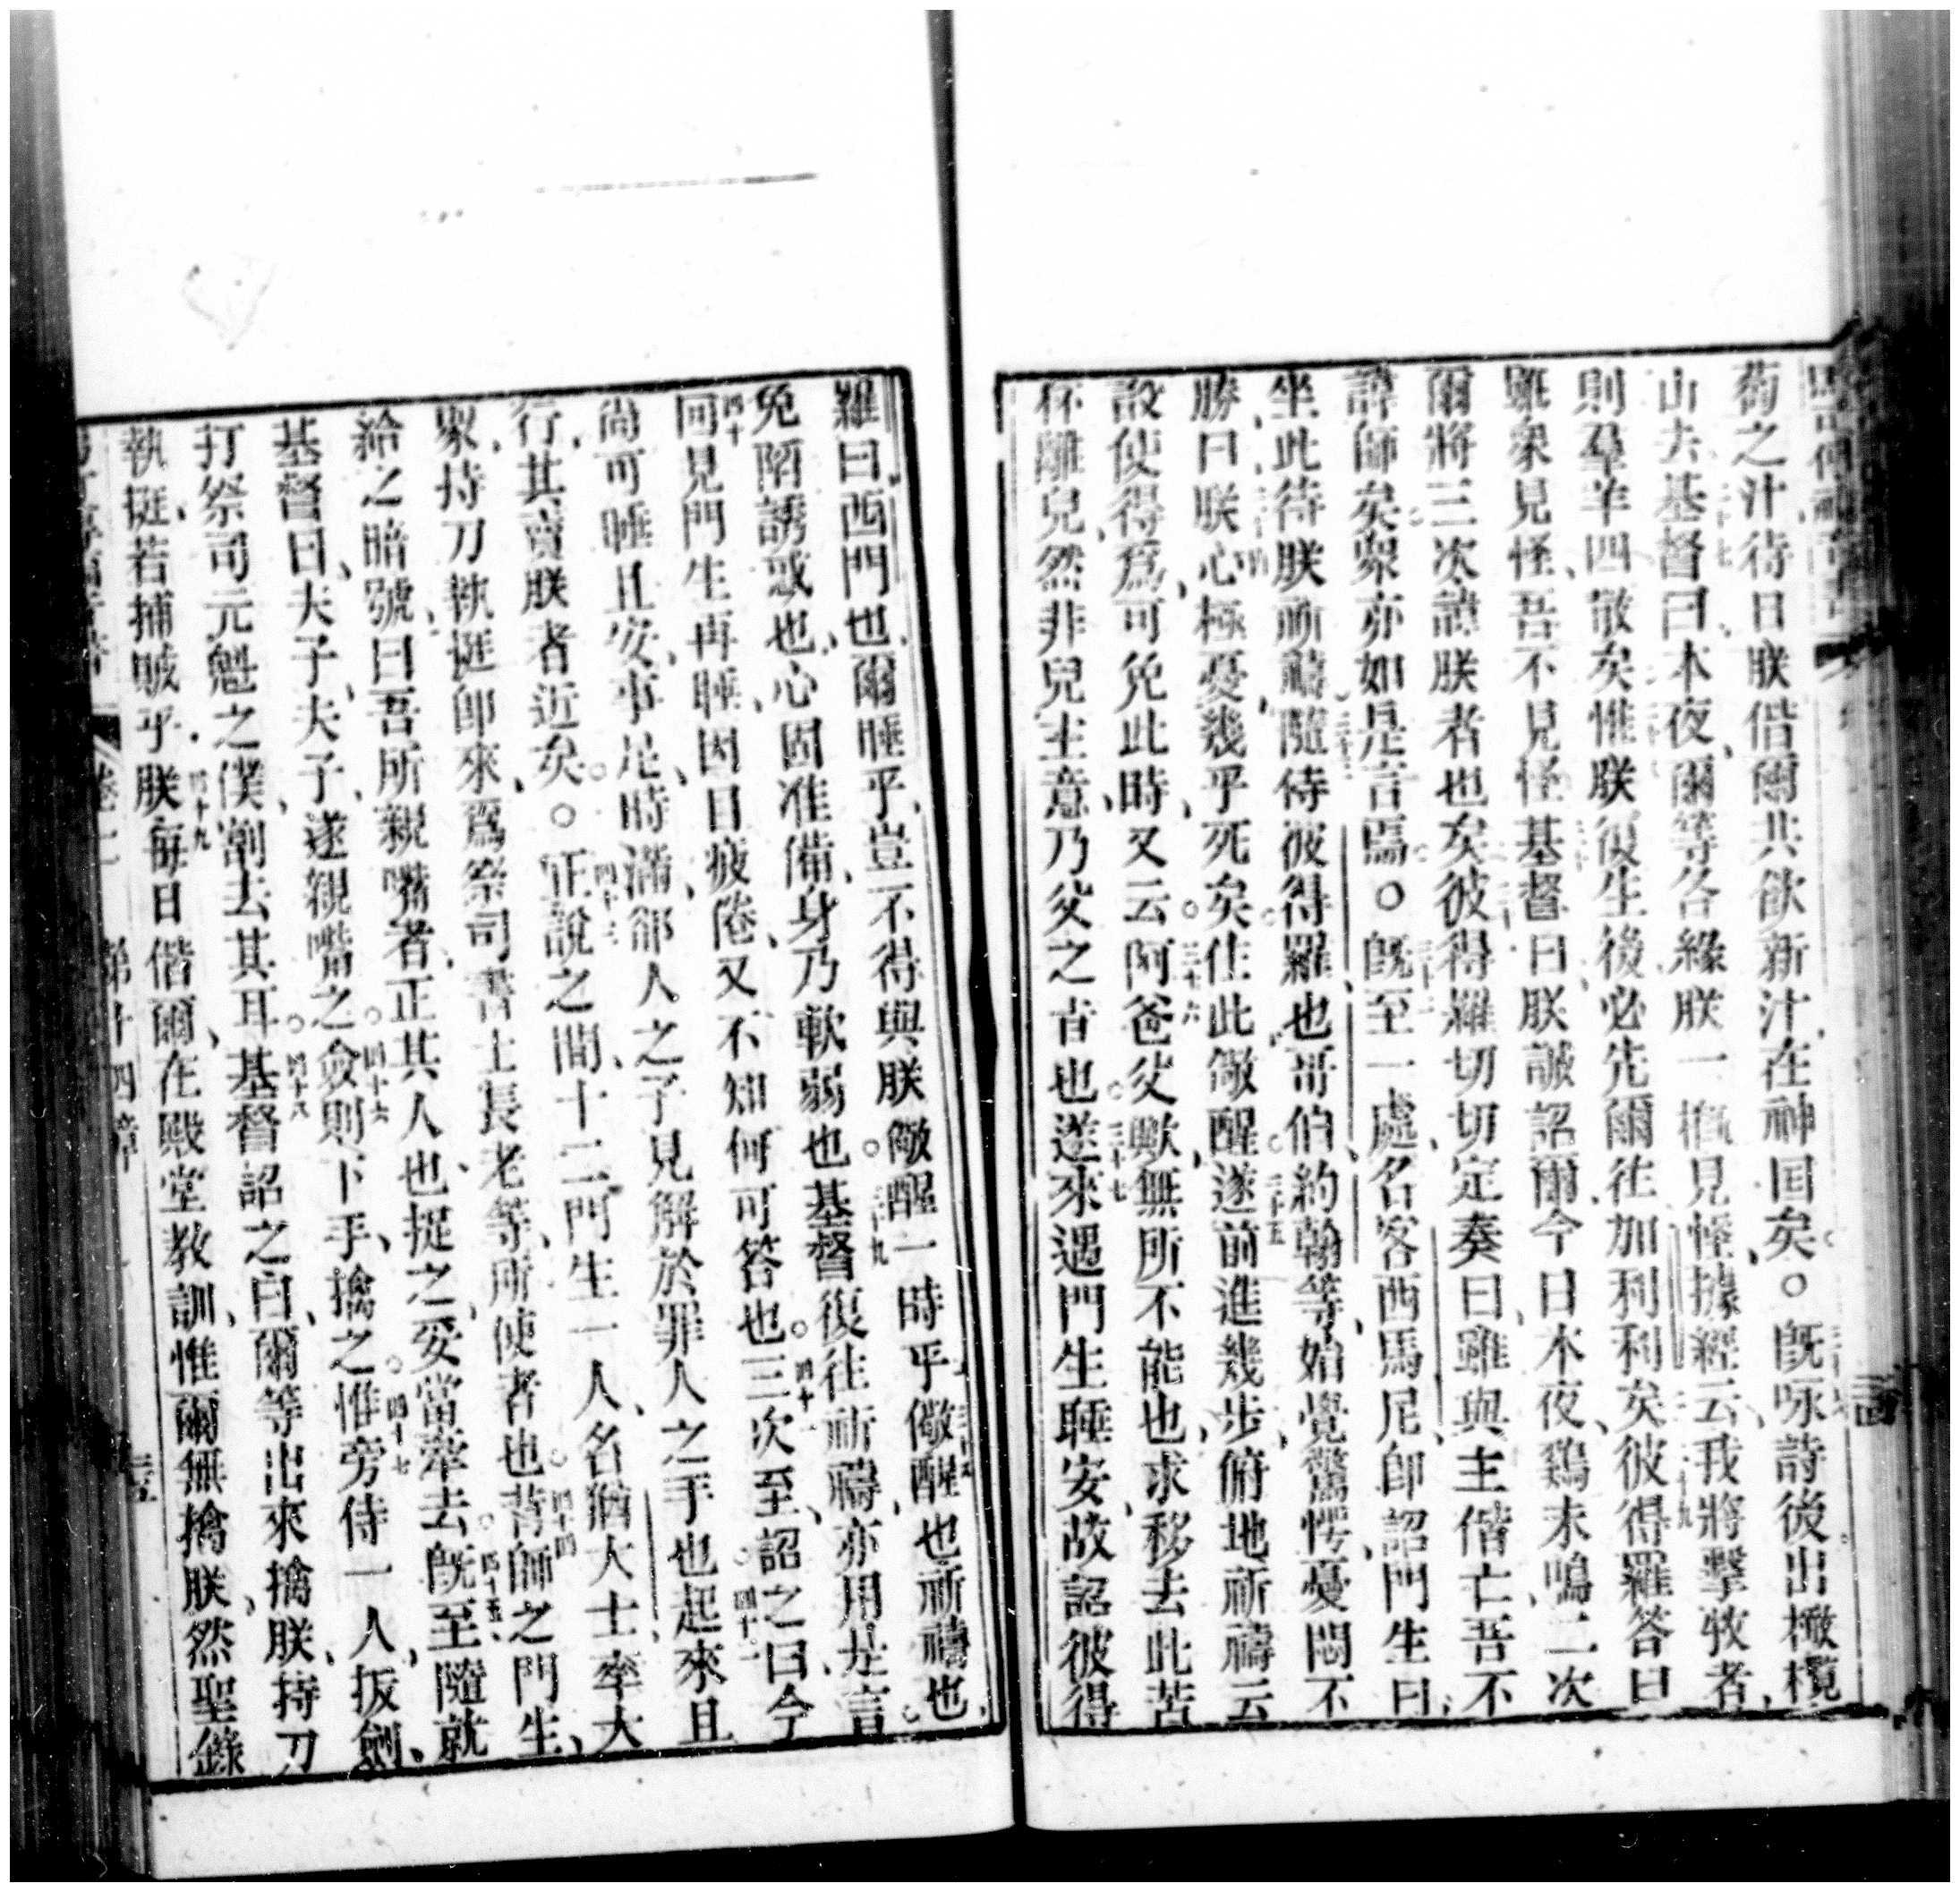 萄之汁待日朕偕爾共飲新汁在神国矣。○既咏詩後出橄欖
山去基督曰本夜爾等各緣朕一概見怪據經云我將擊牧者
則羣羊四散矣惟朕復生後必先爾往加利利矣彼得羅答曰
雖衆見怪吾不見怪基督曰朕誠詔爾今日本夜鷄未鳴二次
爾將三次諱朕者也矣彼得羅切切定奏曰雖與主偕亡吾不
諱師矣衆亦如是言焉○既至一處名客西馬尼卽詔門生曰
坐此待朕祈禱三十三隨侍彼得羅也哥伯約翰等始覺驚愕憂悶不
勝曰三十四朕心極憂幾乎死矣住此儆醒三十五遂前進幾步俯地祈禱云
設使得爲可免此時三十六又云阿爸父歟無所不能也求移去此苦
杯離兒然非兒主意乃父之旨也三十七遂來遇門生睡安故詔彼得
羅曰西門也爾睡乎豈不得與朕儆醒一時乎三十八儆醒也祈禱也
免陷誘惑也心固准備身乃軟弱也三十九基督復往祈禱亦用是言
四十回見門生再睡因目疲倦又不知何可答也四十一三次至詔之曰今
尚可睡且安事足時滿卻人之子見解於罪人之手也四十二起來且
行其賣朕者近矣○四十三正說之間十二門生一人名猶大士率大
衆持刀執挺卽來爲祭司書士長老等所使者也四十四昔師之門生
給之暗號曰吾所親嘴者正其人也捉之妥當牽去四十五既至隨就
基督曰夫子夫子遂親嘴之四十六僉則下手擒之四十七惟旁侍一人拔劍
打祭司元魁之僕劊去其耳四十八基督詔之曰爾等出來擒朕持刀
執挺若捕賊乎四十九朕每日偕爾在殿堂教訓惟爾無擒朕然聖錄
卷二 第十四章